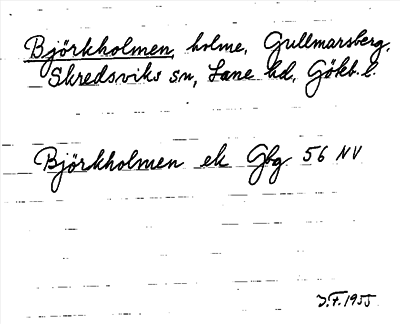 Björkholmen, holme, Gullmarsberg,
Skredsviks sn, Lane hd, Götb. l.
Björkholmen ek Gbg 56 NV
J.F. 1955